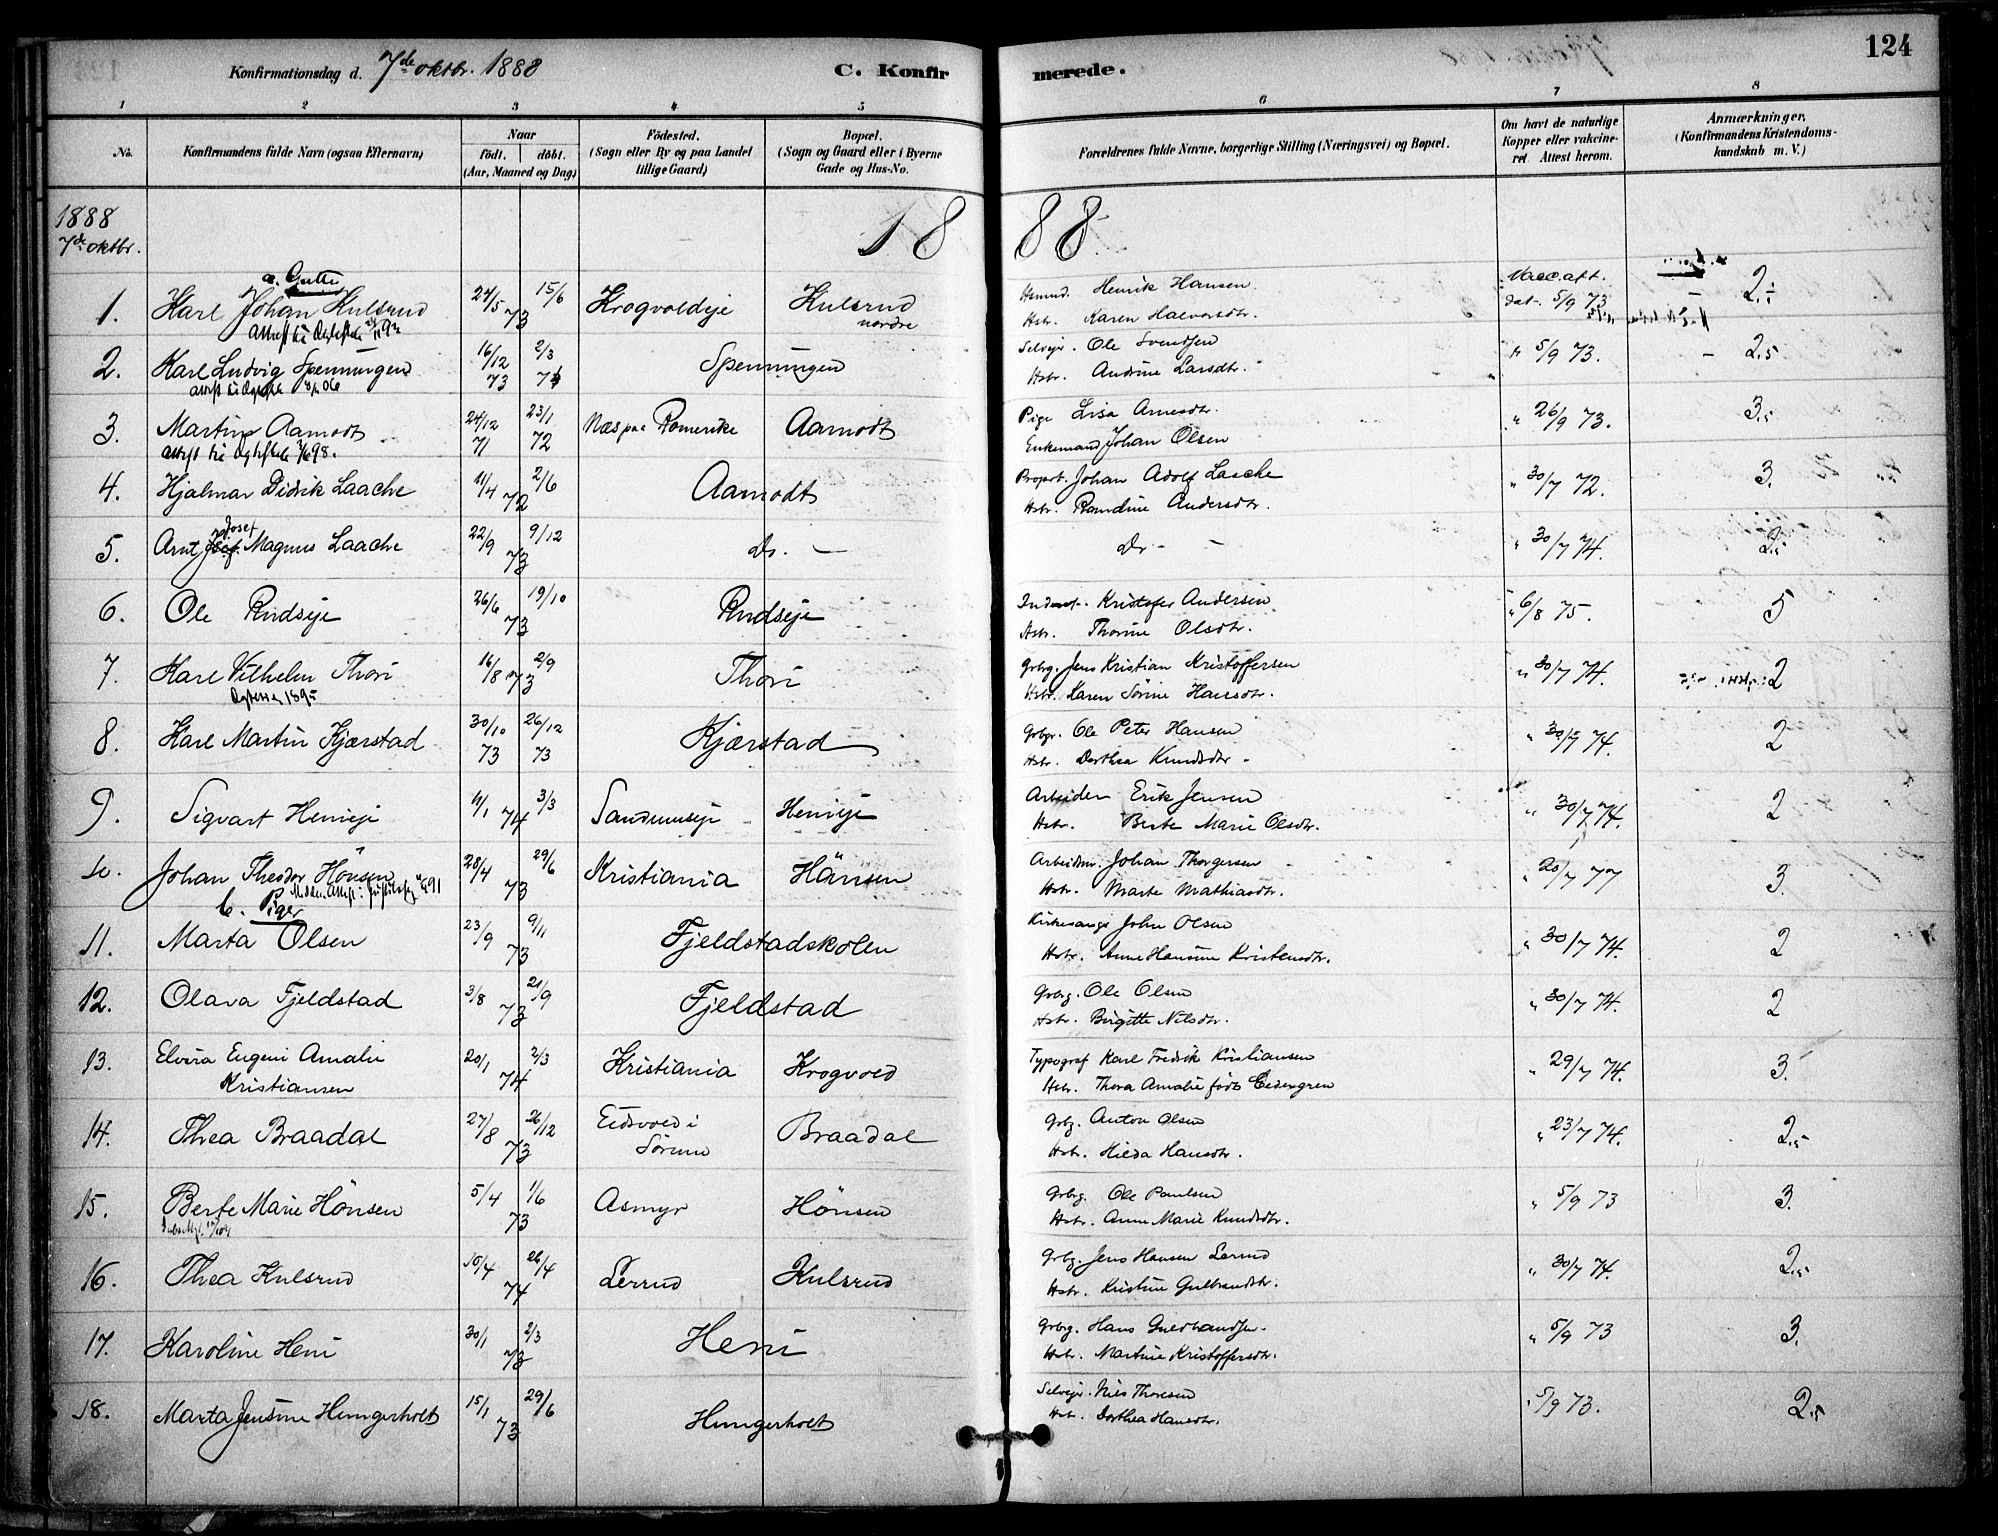 Konfirmationsdag d. 7de oktbr. 1888 C. Konfirmerede. 124
1 2 3 4 5 6 7 8
No. Konfirmandens fulde Navn (ogsaa Efternavn) Naar født. døbt. (Aar, Maaned og Dag) Fødested. (Sogn eller By og paa Landet tillige Gaard) Bopæl. (Sogn og Gaard eller i Byerne Gade og Hus-No. Forældrenes fulde Navne, borgerlige Stilling (Næringsvei) og Bopæl. Om havt de naturlige Kopper eller vakcineret. Attest herom. Anmærkninger. (Konfirmandens Kristendomskundskab m. V.)
1888
7de oktbr.
1888
a. Gutter
1. Karl Johan Kulsrud 24/5 15/6 73 Krogvoldeje Kulsrud nordre Hsmd. Henrik Hansen Vacc. att. dat. 5/9 73 2.5
Hstr. Karen Halvorsdtr.
2. Karl Ludvig Spenningen 16/12 73 2/3 74 Spenningen Selvejr. Ole Svendsen " 5/9 73. - 2.5
Hstr. Andrine Larsdtr.
3. Martin Aamodt 24/12 71 23/1 72 Næs paa Romerike Aamodt Pige Lisa Arnesdtr. " 26/9 73. 3.5
Enkemand Johan Olsen
4. Hjalmar Didrik Laache 11/4 2/6 72 Aamodt Propr. Johan Adolf Laache " 30/7 72. 3.
Hstr. Randine Andersdtr.
5. Arnt Josef Magnus Laache 22/9 9/12 73 Do. - Do - - " 30/7 74. 2.5
6. Ole Rudseje 26/6 19/10 73 Rudseje Inderst. Kristofer Andersen " 6/8 75. 5
Hstr. Thorine Olsdtr.
7. Karl Vilhelm Thori 16/8 2/9 73 Thori Grbrg. Jens Kristian Kristoffersen " 30/7 74. 2
Hstr. Karen Sörine Hansdtr.
8. Karl Martin Kjærstad 30/10 73 26/12 73 Kjærstad Grbgr. Ole Peter Hansen " 30/7 74. 2
Hstr. Dorthea Knudsdtr.
9. Sigvart Henieje 11/1 3/3 74 Henieje Arbeider Erik Jensen " 30/7 74. 2
Hstr. Berte Marie Olsdtr.
10. Johan Theodor Hönsen 28/4 29/6 73 Kristiania Hänsen Arbeidsm. Johan Thorgersen " 20/7 77 3.
Hstr. Marte Mathiasdtr.
b. Piger
11. Marta Olsen 23/9 9/11 73 Fjeldstadskolen Kirkesanger John Olsen " 30/7 74. 2
Hstr. Anne Hansine Kristensdtr.
12. Olava Fjeldstad 3/8 21/9 73 Fjeldstad Grbrg. Ole Olsen " 30/7 74. 2
Hstr. Birgitte Nilsdtr.
13. Elvira Eugeni Amalie 20/1 2/3 74 Kristiania Krogvold Typograf Karl Fredrik Kristiansen " 29/7 74. 3.
Kristiansen Hstr. Thora Amalie födt Cedergren
14. Thea Braadal 27/8 26/12 73 Eidsvold i Braadal Grbg. Anton Olsen " 23/7 74. 2.5
Hstr. Hilda Hansdtr.
15. Berte Marie Hönsen 5/4 1/6 73 Asmyr Hönsen Grbrg. Ole Paulsen " 5/9 73 3.
Hstr. Anne Marie Knudsdtr.
16. Thea Kulsrud 10/4 26/4 74 Lerrud Kulsrud Grbg. Jens Hansen Lerrud " 30/7 74. 2.5
Hstr. Kristine Gulbrandsdtr.
17. Karoline Heni 30/1 2/3 73 Heni Grbrg. Hans Guldbrandsen " 5/9 73 3.
Hstr. Martine Kristoffersdtr.
18. Marta Jensine Hungerholt 15/1 29/6 73 Hungerholt Selvejr. Nils Thoresen " 5/9 73. 2.5
Hstr. Dorthea Hansdtr.